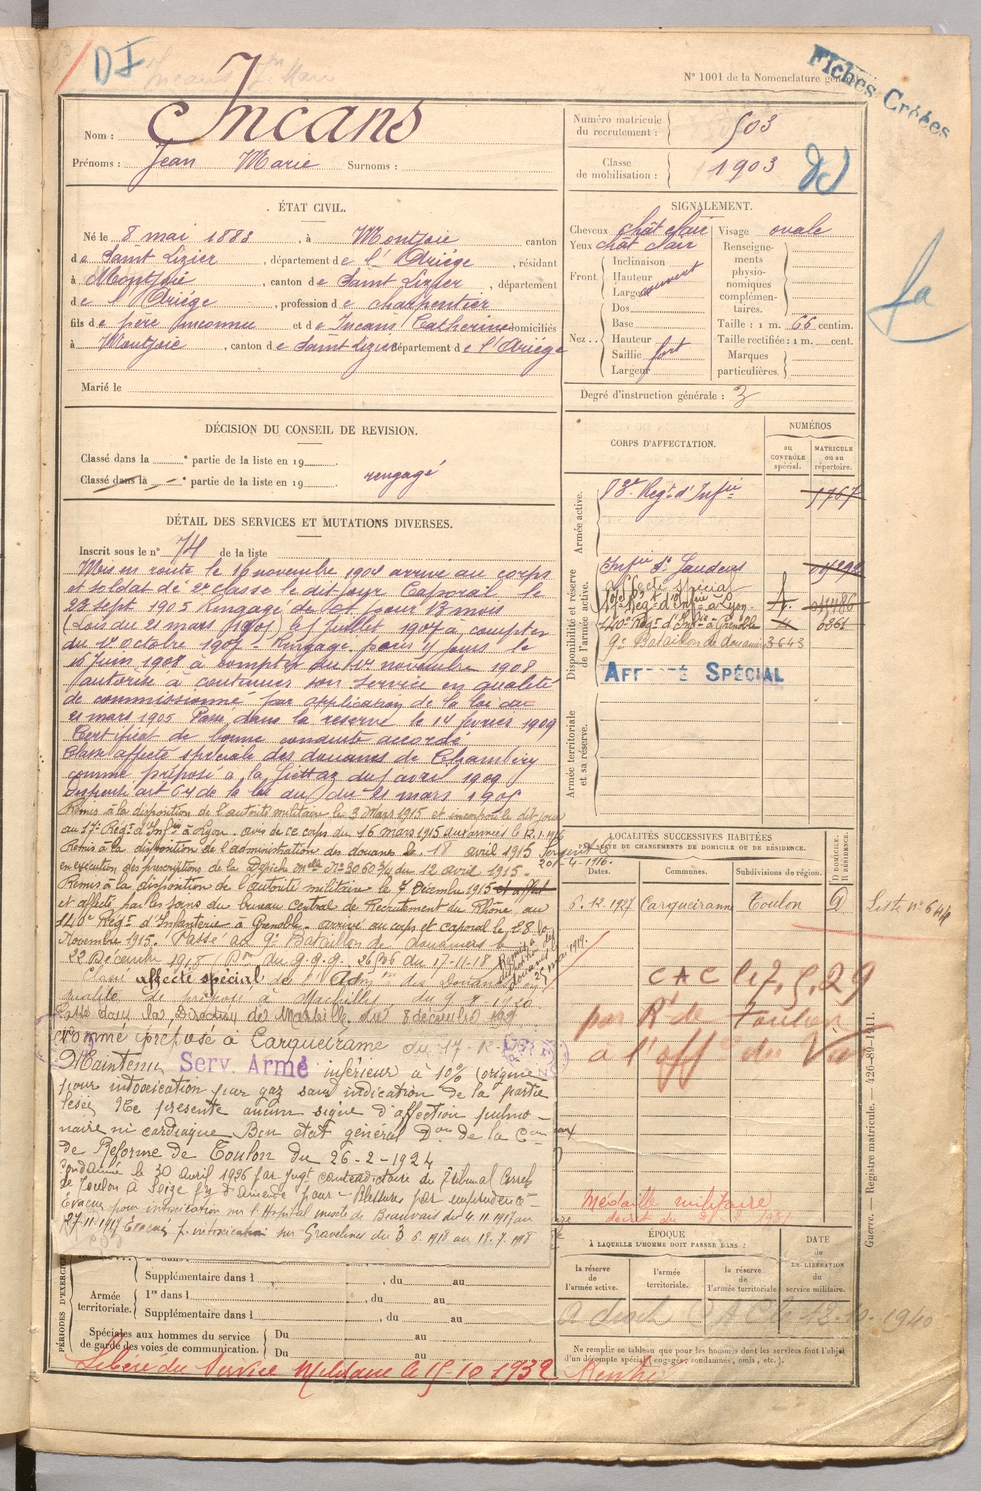 DF
N° 1001 de la Nomenclature
Fiches Créées
Nom : Incans
Prénoms : Jean Marie Surnoms :
Numéro matricule du recrutement : 503
Classe de mobilisation : 1903
ÉTAT CIVIL.
Né le 8 mai 1883, à Montjoie canton
de Saint Lizier, département de l'Ariège, résidant
à Montjoie, canton de Saint Lizier, département
de l'Ariège, profession de charpentier
fils de père inconnu et de Incans Catherine domiciliés
à Montjoie, canton de Saint Lizier département de l'Ariège
Marié le
SIGNALEMENT.
Cheveux chât clair Visage ovale
Yeux chât clair Renseignements physionomiques complémentaires.
Front Inclinaison
Hauteur
Largeur
couvert
Nez Dos
Base
Hauteur
Saillie fort
Largeur
Taille : 1 m. 66 centim.
Taille rectifiée : 1 m. cent.
Marques particulières.
Degré d'instruction générale : 3
DÉCISION DU CONSEIL DE REVISION.
Classé dans la e partie de la liste en 19
Classé dans la e partie de la liste en 19 rengagé
CORPS D'AFFECTATION.
NUMÉROS
au CONTRÔLE spécial.
MATRICULE ou au répertoire.
Armée active.
83e Régt d'Infie 1767
Disponibilité et réserve de l'armée active.
Infie St Gaudens
affecté spécial
140e Régt d'Infie à Grenoble 6361
9e Bataillon de douaniers 3643
AFFECTÉ SPÉCIAL
Armée territoriale et sa réserve.
DÉTAIL DES SERVICES ET MUTATIONS DIVERSES.
Inscrit sous le n° 74 de la liste
Mis en route le 16 novembre 1904 arrivé au corps
et soldat de 2e classe le dit jour Caporal le
23 sept 1905 Rengagé de Oct pour 13 mois
(Loi du 21 mars 1905) le 5 juillet 1907 à compter
du 1er octobre 1907 - Rengagé pour 4 jours le
18 Juin 1908 à compter du 14 novembre 1908
autorisé à continuer son service en qualité
de commissionné par application de la loi du
21 mars 1905 Passé dans la réserve le 14 février 1909
Certificat de bonne conduite accordé
Classé affecté spécial des douanes de Chambéry
comme préposé à la Giettaz du 1 avril 1909
Dispensé art 64 de la loi du 21 mars 1905
Remis à la disposition de l'autorité militaire le 3 Mars 1915 et incorporé le dit jour
au 17e Régt d'Infie à Lyon - avis de ce corps du 16 mars 1915 aux armées le 12.1.1916
Remis à la disposition de l'administration des douanes le 18 avril 1915 Sergent
20-4-1916.
en exécution des prescriptions de la Dépêche melle N° 3060 3/4 du 12 avril 1915 -
Remis à la disposition de l'autorité militaire le 7 Décembre 1915 et affect
et affecté par les soins du bureau central de Recrutement du Rhône au
140e Régt d'Infanterie à Grenoble - arrivé au corps et caporal le 28
Novembre 1915. Passé au 9e Bataillon de douaniers le
22 Décembre 1918 (Don du G.Q.G. du 17-11-18
Classé affecté spécial de l'Admon des Douanes en
qualité de préposé à Marseille du 9 8 1920
Passé dans la Direction de Marseille du 8 décembre
Nommé préposé à Carqueiranne du 17-12-
Maintenu Serv. Armé inférieur à 10% (origine
pour intoxication par gaz sans indication de la partie
lésée. Ne présente aucun signe d'affection pulmo-
naire ni cardiaque. Bon état général Don de la Con
de Réforme de Toulon du 26-2-1924
Condamné le 30 avril 1926 par Jugt contradictoire du Tribunal Correl
de Toulon à Seize f d'Amende pour - Blessures par imprudence -
Evacué pour intoxication sur l'Hopital mixte de Beauvais du 4.11.1917 au
27.11.1917 Evacué p. intoxication sur Gravelines du 3 6.1918 au 18.7.1918
LOCALITÉS SUCCESSIVES HABITÉES
DE CHANGEMENTS DE DOMICILE OU DE RÉSIDENCE.
Dates. Communes. Subdivisions de région. D DOMICILE. R RÉSIDENCE.
6.12.1927 Carqueiranne Toulon D
CAC le 7.5.29
par Rt de Toulon
à l'aff
Médaille militaire
ÉPOQUE
À LAQUELLE L'HOMME DOIT PASSER DANS :
la réserve de l'armée active.
l'armée territoriale.
la réserve de l'armée territoriale
DATE de LA LIBÉRATION du service militaire.
1940
Ne remplir ce tableau que pour les hommes dont les services font l'objet
d'un décompte spécial (engagés, condamnés, omis, etc.).
PÉRIODES D'EXERCICES
Supplémentaire dans l , du au
Armée territoriale. 1re dans l , du au
Supplémentaire dans l , du au
Spéciales aux hommes du service de garde des voies de communication. Du au
Du au
Libéré du Service Militaire le 15-10 1932
Guerre. — Registre matricule. — 426-89-1911.